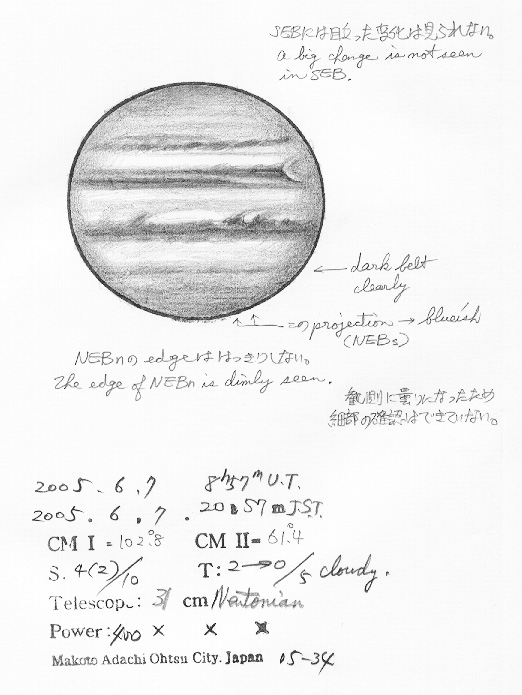 SEBには目立った変化は見られない。
a big change is not seen
in SEB.
dark belt
clearly
この projection → blueish
(NEBs)
NEBnのedgeははっきりしない。
The edge of NEBn is dimly seen.
観測に曇りになったため
細部の確認はできていない。
2005. 6. 7 8h57m U.T.
2005. 6. 7. 20h57m J.S.T.
CM I = 102.8° CM II = 61.4°
S. 4(2)/10 T: 2→0/5 cloudy.
Telescope: 31 cm/Newtonian
Power: 400 × × ×
Makoto Adachi Ohtsu City. Japan 05-34